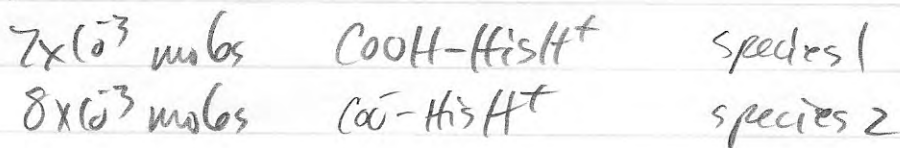 7x10⁻³ mols COOH-HisH⁺ species 1
8x10⁻³ mols COO⁻-HisH⁺ species 2